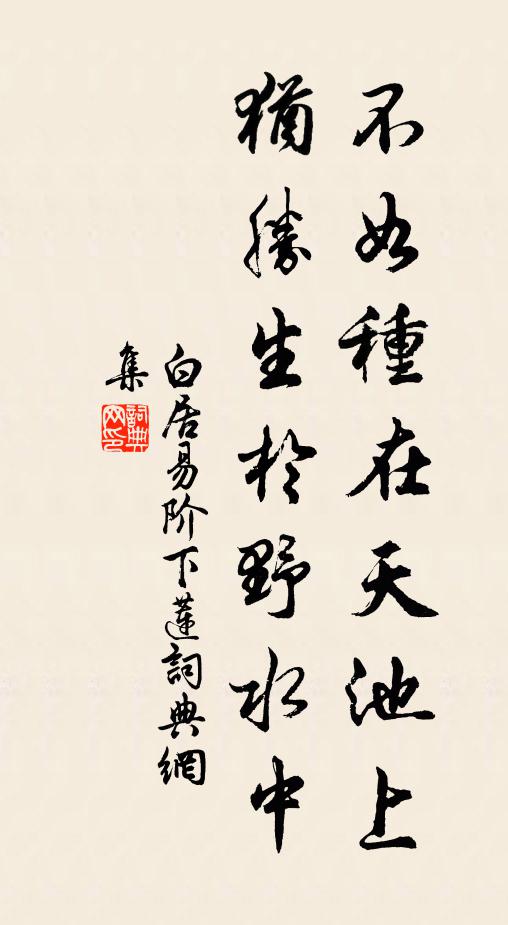 不如種在天池上
猶勝生於野水中
白居易阶下蓮詞典網
集
詞典
网印